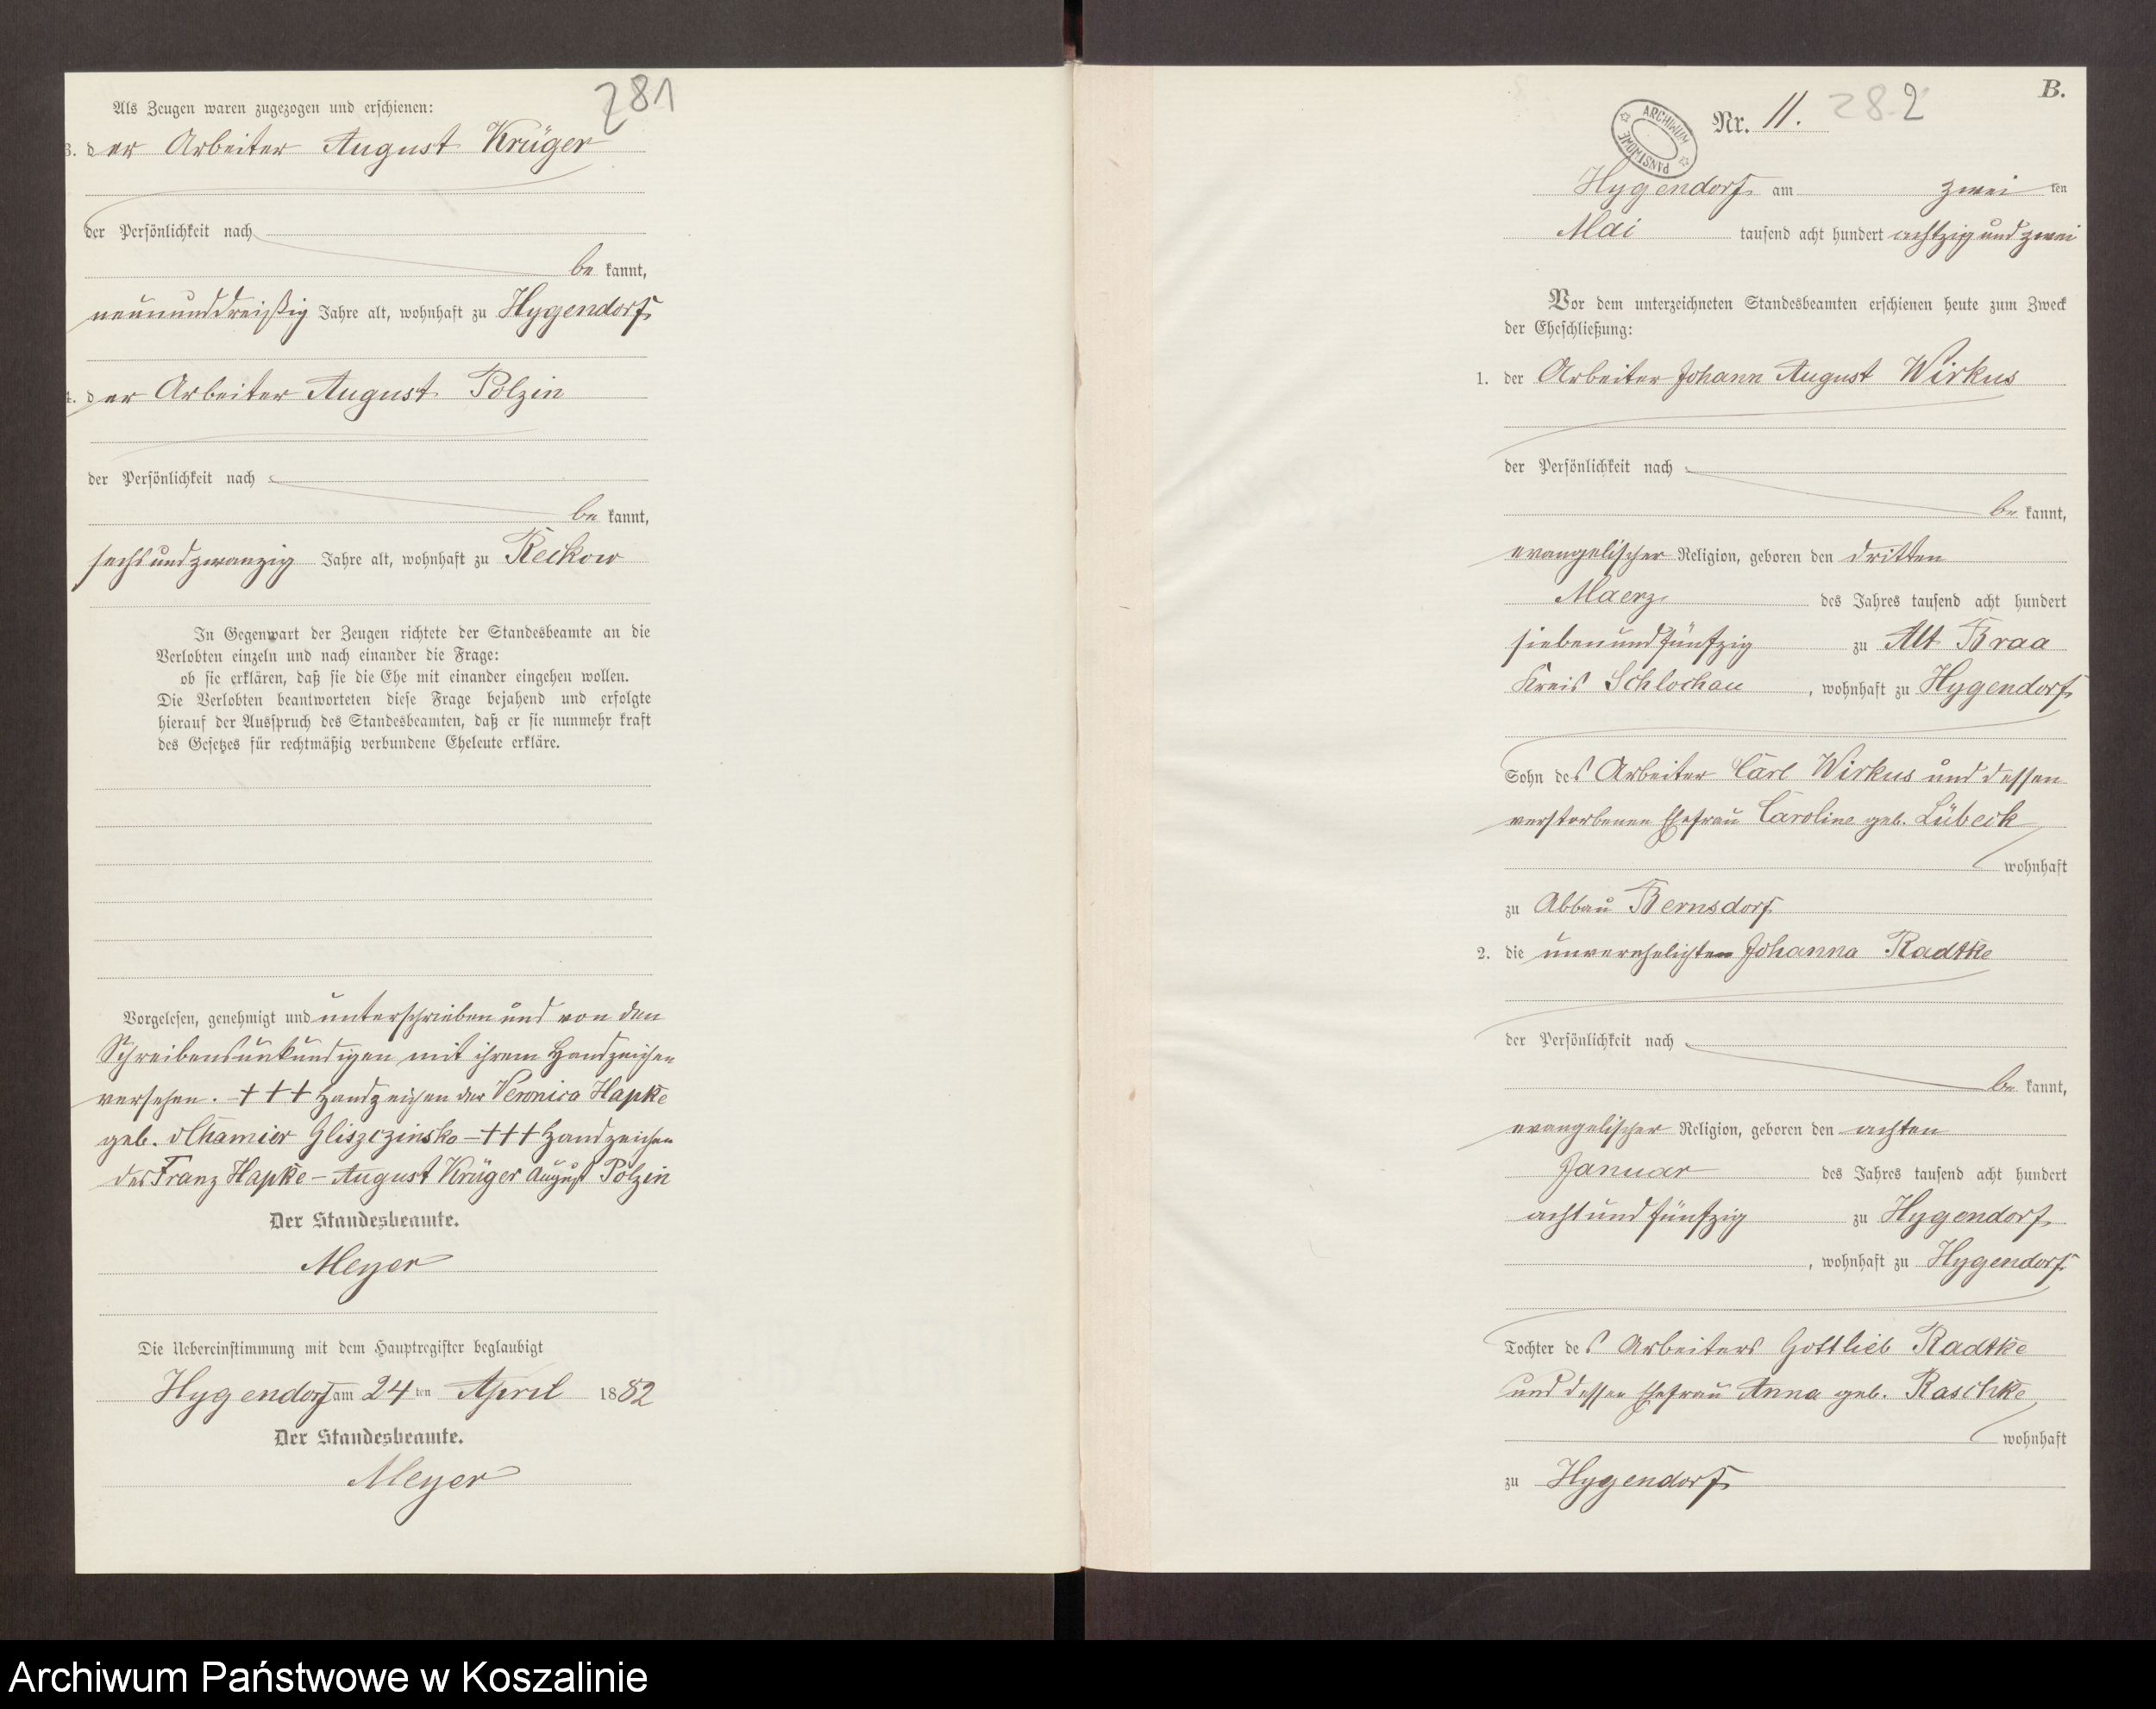 281
Als Zeugen waren zugezogen und erschienen:
3. der Arbeiter August Krüger
der Persönlichkeit nach
be kannt,
neununddreißig Jahre alt, wohnhaft zu Hygendorf
4. der Arbeiter August Polzin
der Persönlichkeit nach
be kannt,
sechsundzwanzig Jahre alt, wohnhaft zu Reckow
In Gegenwart der Zeugen richtete der Standesbeamte an die
Verlobten einzeln und nach einander die Frage:
ob sie erklären, daß sie die Ehe mit einander eingehen wollen.
Die Verlobten beantworteten diese Frage bejahend und erfolgte
hierauf der Ausspruch des Standesbeamten, daß er sie nunmehr kraft
des Gesetzes für rechtmäßig verbundene Eheleute erkläre.
Vorgelesen, genehmigt und unterschrieben und von den
Schreibensunkundigen mit ihrem Handzeichen
versehen. +++ Handzeichen der Veronica Hapke
geb. v Chamier Gliszczinsko - +++ Handzeichen
des Franz Hapke - August Krüger August Polzin
Der Standesbeamte.
Meyer
Die Uebereinstimmung mit dem Hauptregister beglaubigt
Hygendorf am 24 ten April 1882
Der Standesbeamte.
Meyer
B.
ARCHIWUM PAŃSTWOWE
Nr. 11. 282
Hygendorf am zwei ten
Mai tausend acht hundert achtzig und zwei
Vor dem unterzeichneten Standesbeamten erschienen heute zum Zweck
der Eheschließung:
1. der Arbeiter Johann August Wirkus
der Persönlichkeit nach
be kannt,
evangelischer Religion, geboren den dritten
Maerz des Jahres tausend acht hundert
siebenundfünfzig zu Alt Braa
Kreis Schlochau, wohnhaft zu Hygendorf
Sohn des Arbeiter Carl Wirkus und dessen
verstorbenen Ehefrau Caroline geb. Lübeck
wohnhaft
zu Abbau Bernsdorf
2. die unverehelichten Johanna Radtke
der Persönlichkeit nach
be kannt,
evangelischer Religion, geboren den achten
Januar des Jahres tausend acht hundert
acht und fünfzig zu Hygendorf
, wohnhaft zu Hygendorf
Tochter des Arbeiters Gottlieb Radtke
und dessen Ehefrau Anna geb. Raschke
wohnhaft
zu Hygendorf
Archiwum Państwowe w Koszalinie